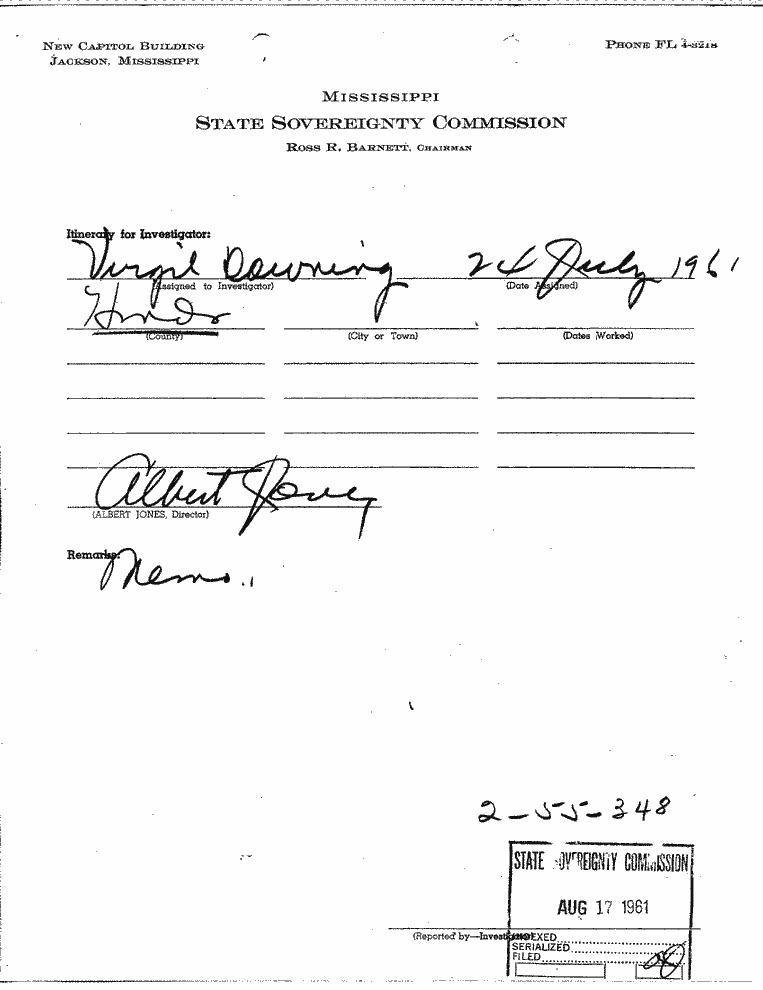 NEW CAPITOL BUILDING
JACKSON, MISSISSIPPI
PHONE FL 4-3218
MISSISSIPPI
STATE SOVEREIGNTY COMMISSION
ROSS R. BARNETT, CHAIRMAN
Itinerary for Investigator:
Virgil Downing 24 July 1961
(Assigned to Investigator) (Date Assigned)
Hinds
(County) (City or Town) (Dates Worked)
Albert Jones
(ALBERT JONES, Director)
Remarks:
Memo.
2-55-348
STATE SOVEREIGNTY COMMISSION
AUG 17 1961
(Reported by—Investigator)
INDEXED
SERIALIZED
FILED